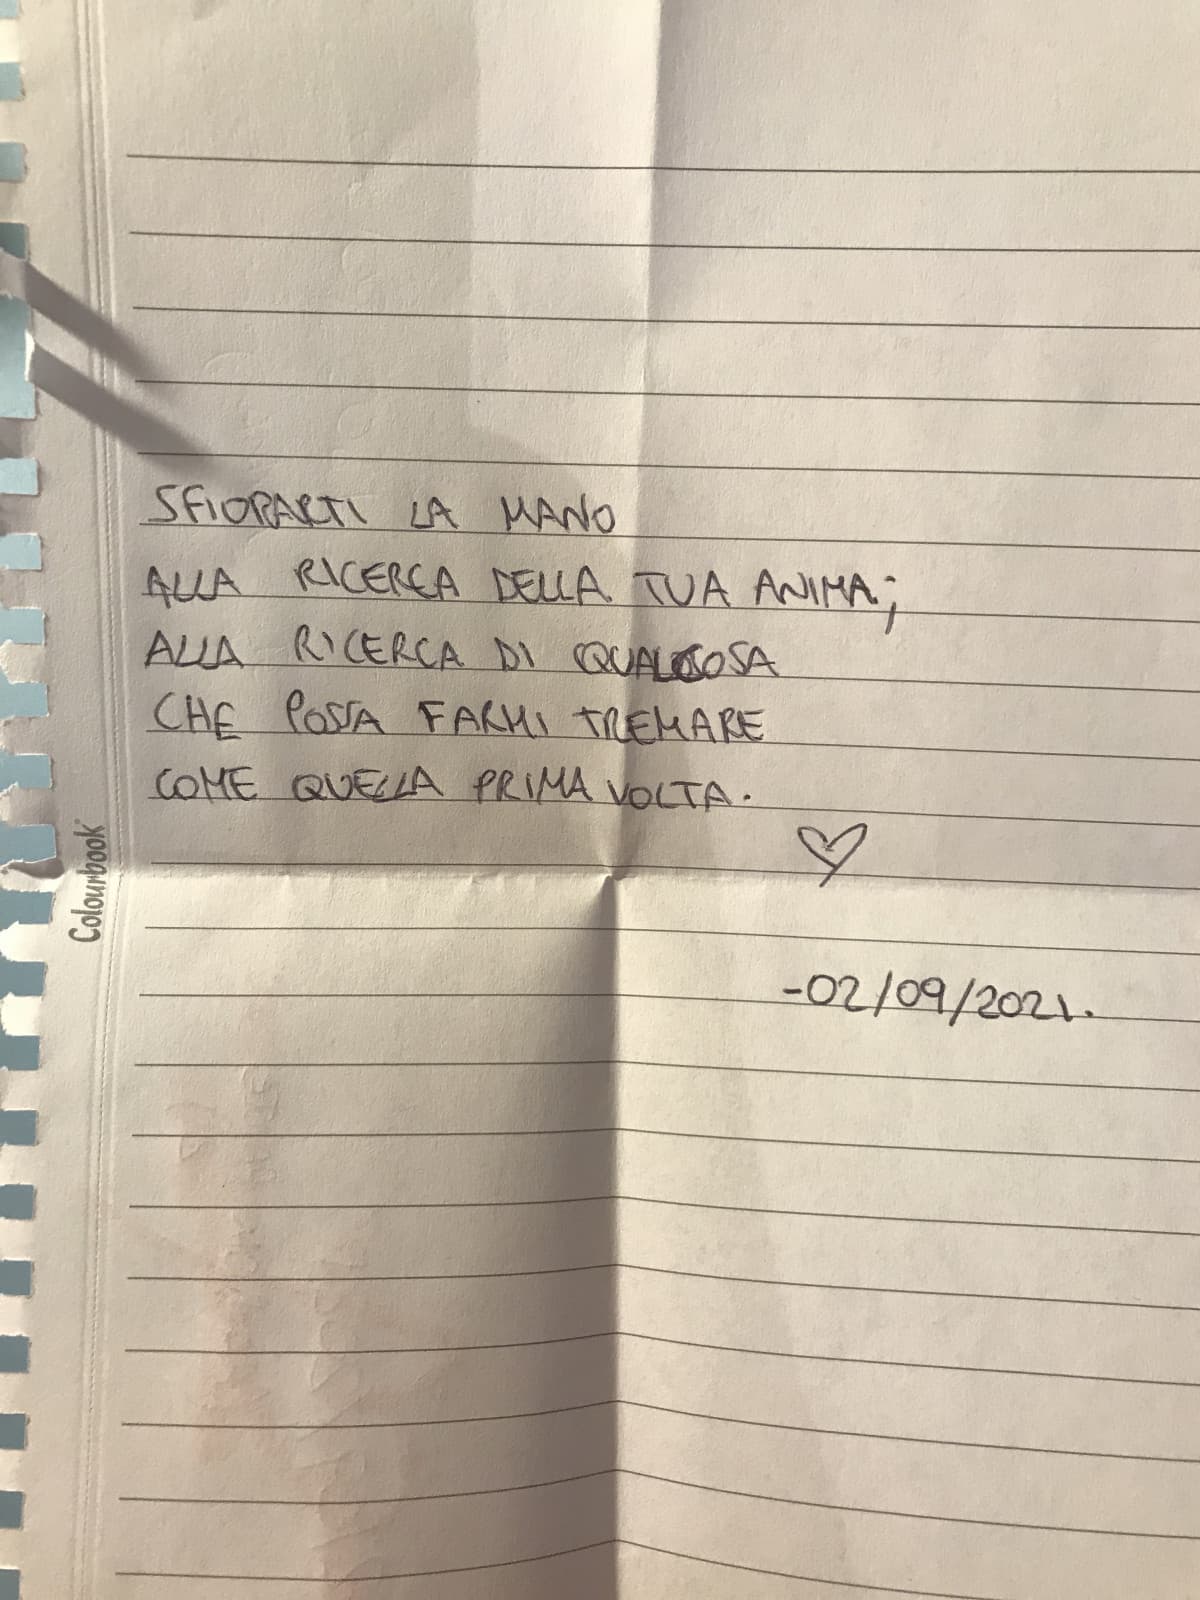 SFIORARTI LA MANO
ALLA RICERCA DELLA TUA ANIMA;
ALLA RICERCA DI QUALCOSA
CHE POSSA FARMI TREMARE
COME QUELLA PRIMA VOLTA.
-02/09/2021.
Colourbook